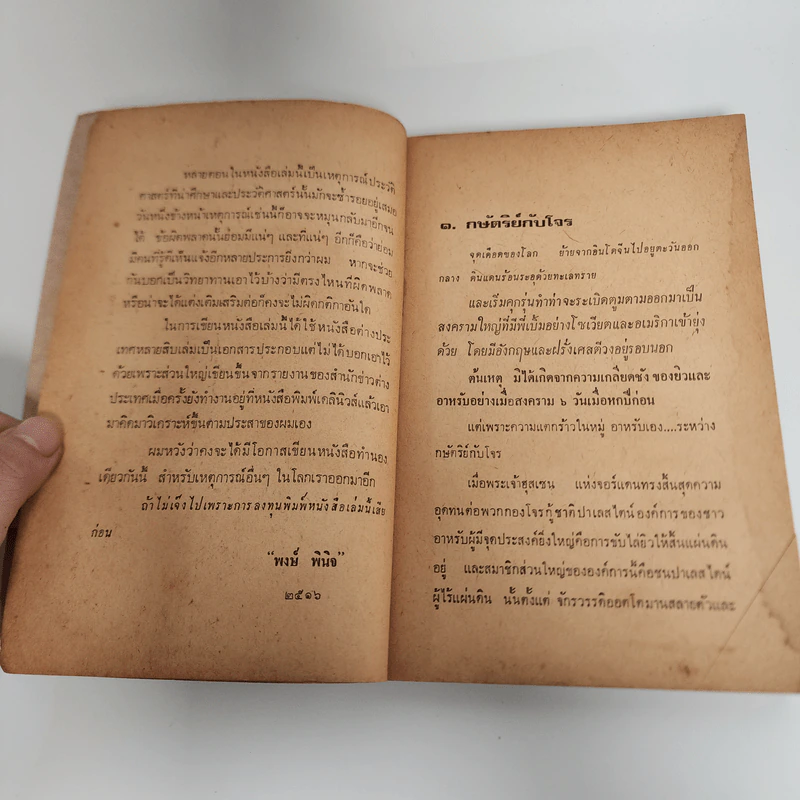 หลายตอนในหนังสือเล่มนี้เป็นเหตุการณ์ประวัติ
ศาสตร์ที่น่าศึกษาและประวัติศาสตร์นั้นมักจะซ้ำรอยอยู่เสมอ
วันหนึ่งข้างหน้าเหตุการณ์เช่นนี้ก็อาจจะหมุนกลับมาอีกจน
ได้ ข้อผิดพลาดนั้นย่อมมีแน่ๆ และที่แน่ๆ อีกก็คือว่าย่อม
มีคนที่รู้ดีเห็นแจ้งอีกหลายประการยิ่งกว่าผม หากจะช่วย
กันบอกเป็นวิทยาทานเอาไว้บ้างว่ามีตรงไหนที่ผิดพลาด
หรือน่าจะได้แต่งเติมเสริมต่อก็คงจะไม่ผิดกติกาอันใด
ในการเขียนหนังสือเล่มนี้ได้ใช้หนังสือต่างประ
เทศหลายสิบเล่มเป็นเอกสารประกอบแต่ไม่ได้บอกเอาไว้
ด้วยเพราะส่วนใหญ่เขียนขึ้นจากรายงานของสำนักข่าวต่าง
ประเทศเมื่อครั้งยังทำงานอยู่ที่หนังสือพิมพ์เดลินิวส์แล้วเอา
มาคิดมาวิเคราะห์ขึ้นตามประสาของผมเอง
ผมหวังว่าคงจะได้มีโอกาสเขียนหนังสือทำนอง
เดียวกันนี้ สำหรับเหตุการณ์อื่นๆ ในโลกเราออกมาอีก
ถ้าไม่เจ๊งไปเพราะการลงทุนพิมพ์หนังสือเล่มนี้เสีย
ก่อน
“พงษ์ พินิจ”
๒๕๑๖
๑. กษัตริย์กับโจร
จุดเดือดของโลก ย้ายจากอินโดจีนไปอยู่ตะวันออก
กลาง ดินแดนร้อนระอุด้วยทะเลทราย
และเริ่มคุกรุ่นทำท่าจะระเบิดตูมตามออกมาเป็น
สงครามใหญ่ที่มีพี่เบิ้มอย่างโซเวียตและอเมริกาเข้ายุ่ง
ด้วย โดยมีอังกฤษและฝรั่งเศสตีวงอยู่รอบนอก
ต้นเหตุ มิได้เกิดจากความเกลียดชัง ของยิวและ
อาหรับอย่างเมื่อสงคราม ๖ วันเมื่อหกปีก่อน
แต่เพราะความแตกร้าวในหมู่ อาหรับเอง....ระหว่าง
กษัตริย์กับโจร
เมื่อพระเจ้าฮุสเซน แห่งจอร์แดนทรงสิ้นสุดความ
อุดทนต่อพวกกองโจรกู้ชาติปาเลสไตน์องค์การของชาว
อาหรับผู้มีจุดประสงค์ยิ่งใหญ่คือการขับไล่ยิวให้สิ้นแผ่นดิน
อยู่ และสมาชิกส่วนใหญ่ขององค์การนี้คือชนปาเลสไตน์
ผู้ไร้แผ่นดิน นั้นตั้งแต่ จักรวรรดิออตโตมานสลายตัวและ